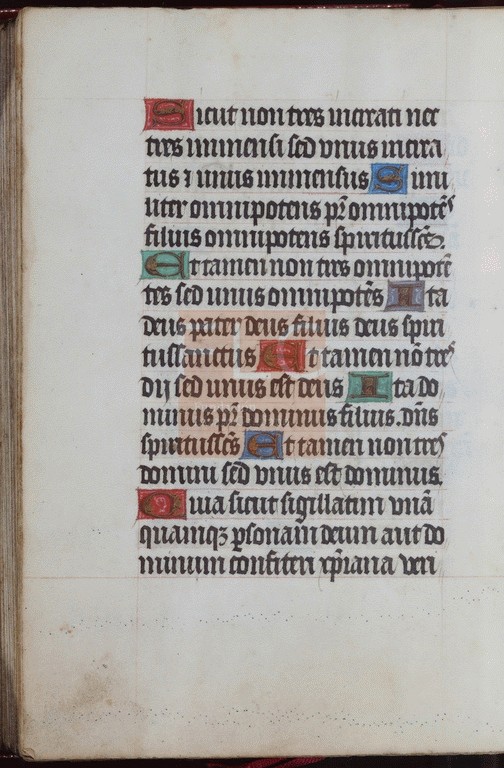 Sicut non tres increati nec
tres inmensi sed vnus increa
tus ⁊ unus inmensus Simi
liter omnipotens pr̄ omnipotēs
filius omnipotens spiritussc̄s.
Et tamen non tres omnipotē
tes sed unus omnipotēs Ita
deus pater deus filius deus spiri
tussanctus Et tamen nō tres
dij sed unus est deus Ita do
minus pr̄ dominus filius. dn̄s
spiritussc̄s Et tamen non tres
domini sed vnus est dominus.
Quia sicut sigillatim vnā
quamqꝫ ꝑsonam deum aut do
minum confiteri xp̄iana veri